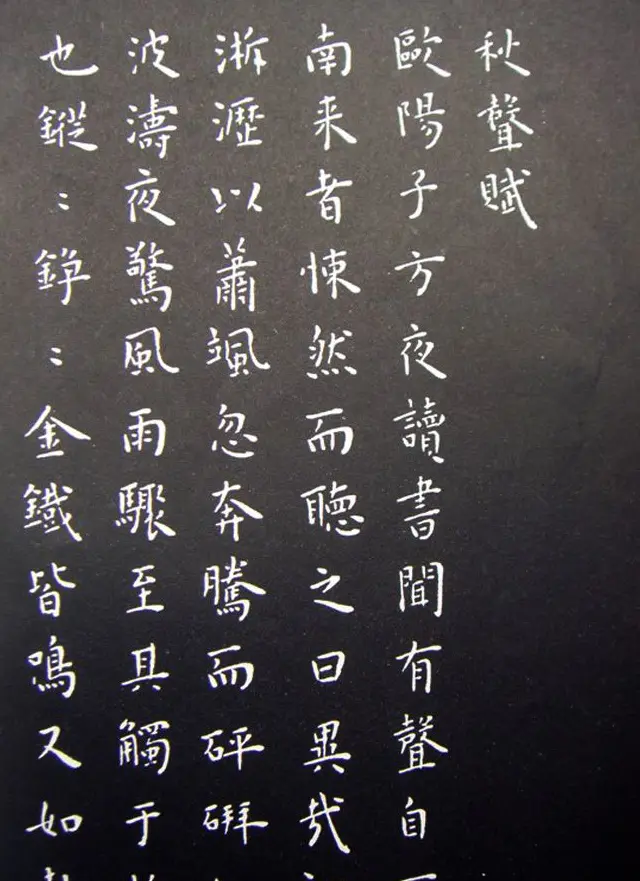 秋聲賦
歐陽子方夜讀書聞有聲自
南来者悚然而聽之曰異哉
淅瀝以蕭颯忽奔騰而砰湃
波濤夜驚風雨驟至其觸于
也鏦〻錚〻金鐵皆鳴又如